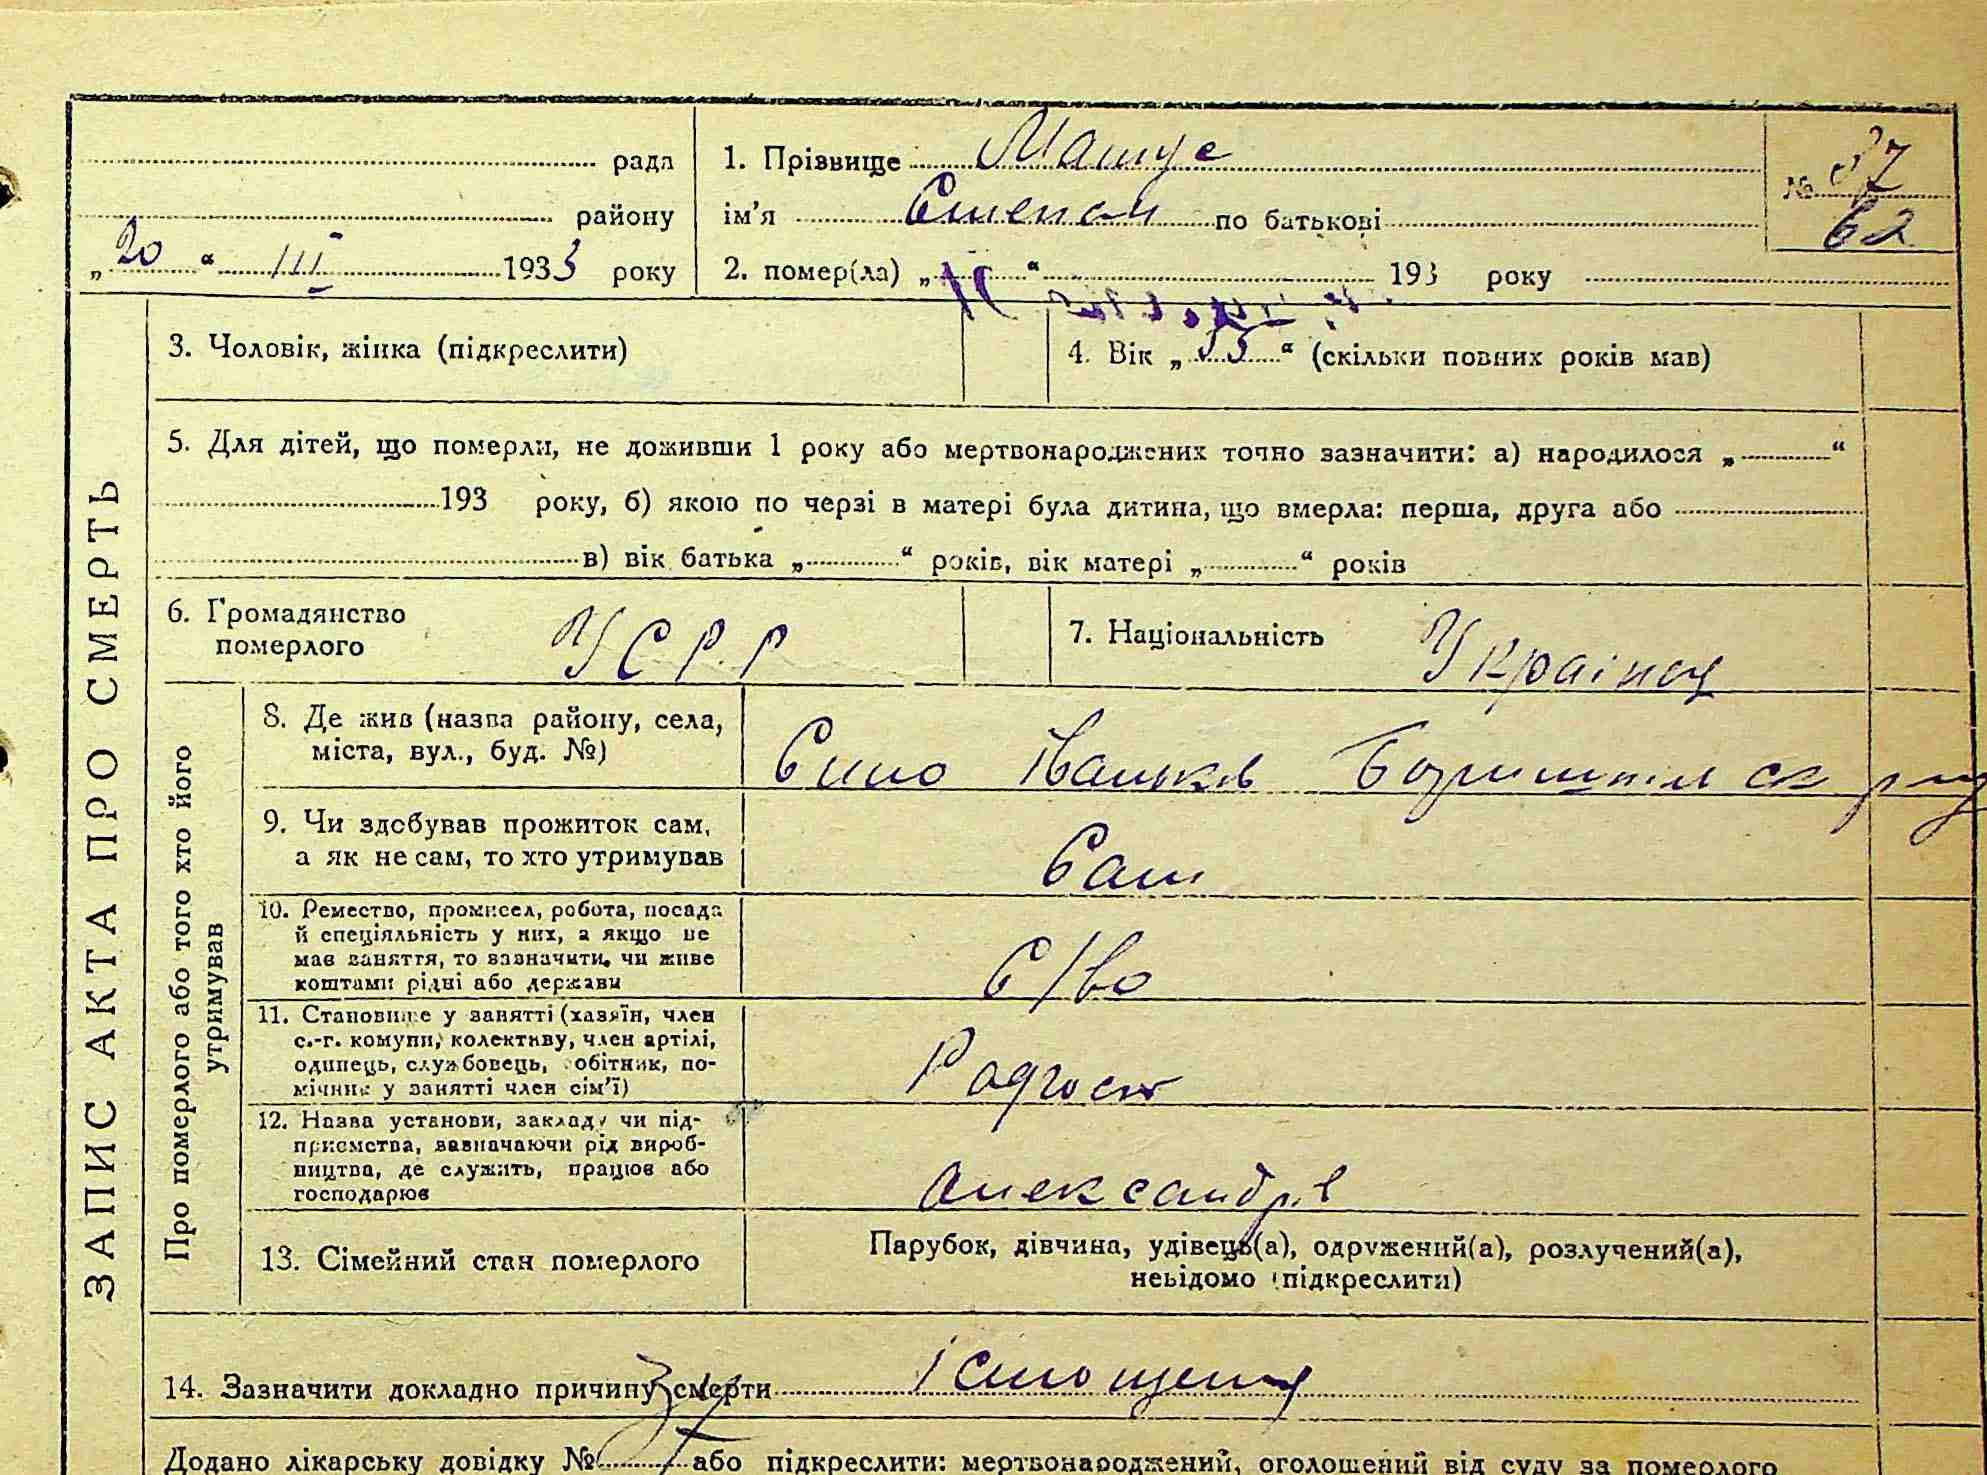 рада
району
„20“ III 1933 року
1. Прізвище Матус
ім’я Степан по батькові
2. помер(ла) „ “ 193 року
№ 37
62
3. Чоловік, жінка (підкреслити)
4. Вік „55“ (скільки повних років мав)
5. Для дітей, що померли, не доживши 1 року або мертвонароджених точно зазначити: а) народилося „ “
193 року, б) якою по черзі в матері була дитина, що вмерла: перша, друга або
в) вік батька „ “ років, вік матері „ “ років
6. Громадянство
померлого
УСРР
7. Національність Украінец
ЗАПИС АКТА ПРО СМЕРТЬ
Про померлого або того хто його
утримував
8. Де жив (назва району, села,
міста, вул., буд. №)
Село Іваньків Бориспільск
9. Чи здобував прожиток сам,
а як не сам, то хто утримував
Сам
10. Ремество, промисел, робота, посада
й спеціяльність у них, а якщо не
має заняття, то зазначити, чи живе
коштами рідні або держави
С/во
11. Становище у занятті (хазяїн, член
с.-г. комуни, колективу, член артілі,
одинець, службовець, робітник, по-
мічник у занятті член сім’ї)
12. Назва установи, закладу чи під-
приємства, зазначаючи рід вироб-
ництва, де служить, працює або
господарює
13. Сімейний стан померлого
Парубок, дівчина, удівець(а), одружений(а), розлучений(а),
невідомо (підкреслити)
14. Зазначити докладно причину смерти Істощения
Додано лікарську довідку № або підкреслити: мертвонароджений, оголошений від суду за померлого